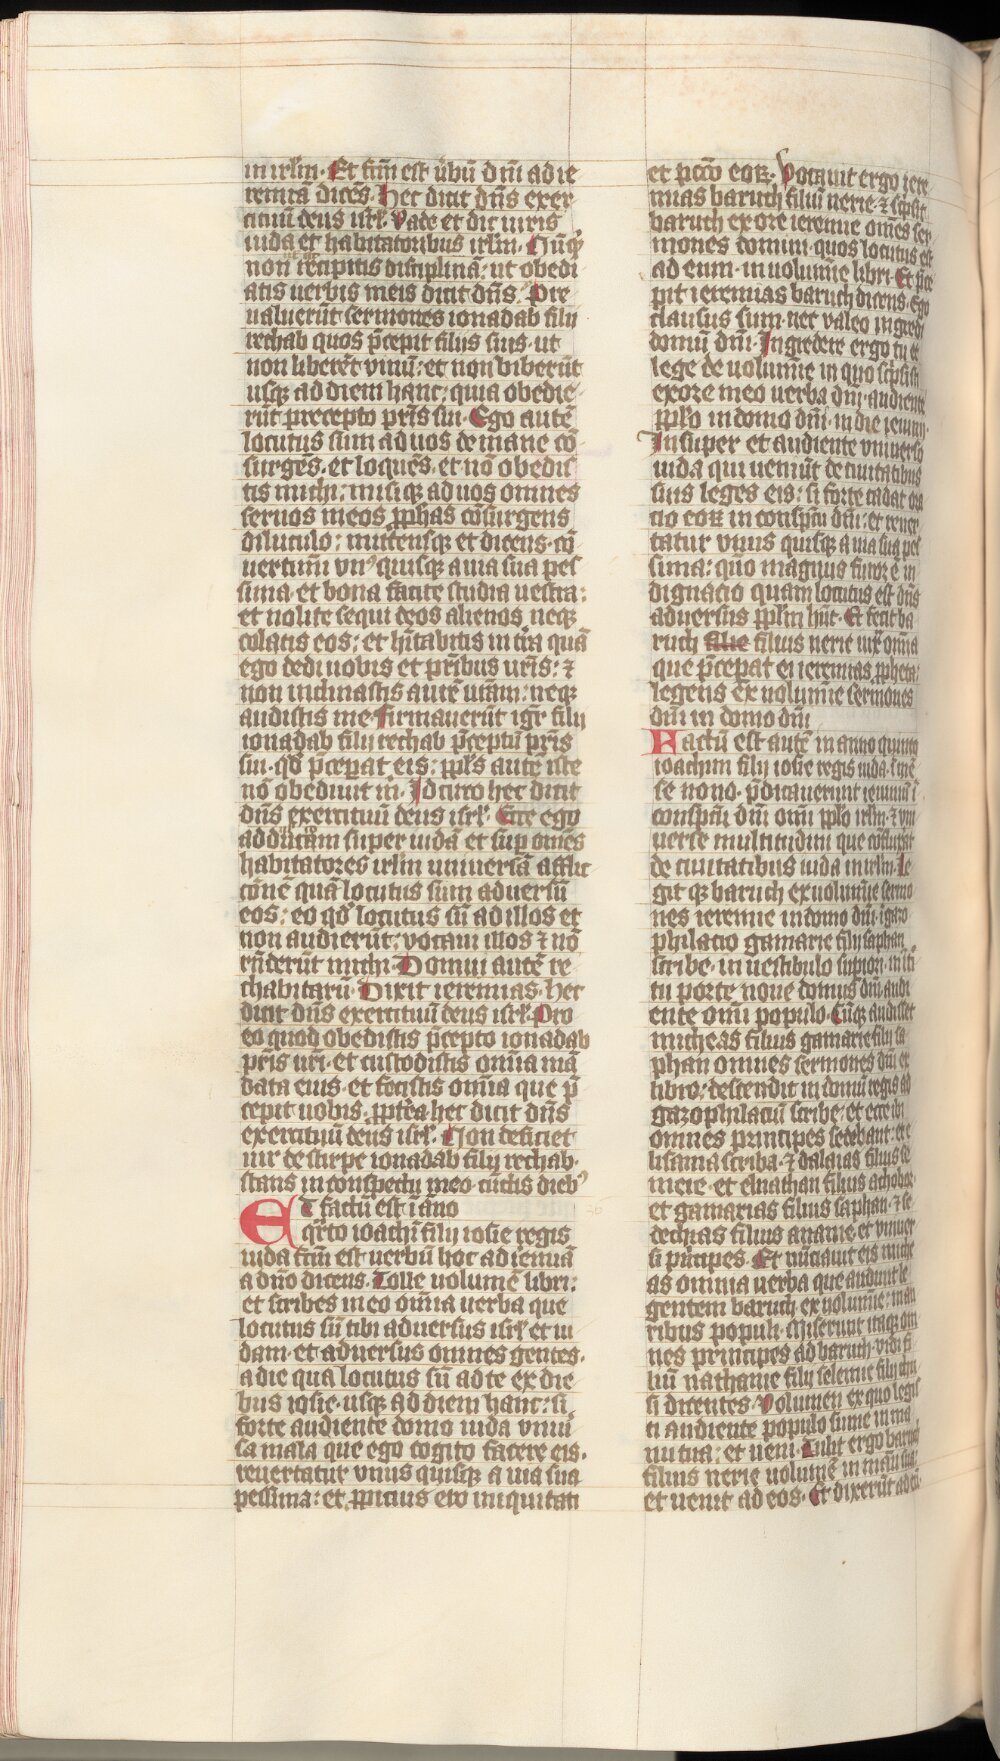 in irlm̄. Et fc̄m est ūbū dn̄i ad ie
remiā dicēs. Hec dicit dn̄s exer
cituū deus isrl̄. Vade et dic uiris
iuda et habitatoribus irlm̄. Nūqͥ
non recipitis disciplinā: ut obedi
atis uerbis meis dicit dn̄s. Pre
ualuerūt sermones ionadab filij
rechab quos p̄cepit filijs suis. ut
non biberēt vinū: et non biberūt
usqꝫ ad diem hanc: quia obedie
rūt precepto pr̄is sui. Ego autē
locutus sum ad uos de mane cō
surgēs. et loquēs. et nō obedis
tis michi: misiqꝫ ad uos omnes
seruos meos ꝓphas cōsurgens
diluculo: mittensqꝫ et dicens. cō
uertimī vnꝰquisqꝫ a uia sua pes
sima. et bona facite studia uestra:
et nolite sequi deos alienos neqꝫ
colatis eos: et hītabitis in tīra quā
ego dedi uobis et pr̄ibus ur̄is: ⁊
non inclinastis aurē ur̄am: neqꝫ
audistis me. firmauerūt igr̄ filij
ionadab filij rechab p̄ceptū pr̄is
sui. qd̄ p̄ceperat eis: ppl̄s autē iste
nō obediuit m̄. Idcirco hec dicit
dn̄s exercituū deus isrl̄. Ecce ego
adducam super iudā et sup̱ omēs
habitatores irlm̄ uniuersā afflic
cōnē quā locutus sum aduersū
eos: eo qd̄ locutus sū ad illos et
non audierūt: vocaui illos ⁊ nō
rn̄derūt michi. Domui autē re
chabitarū. Dixit ieremias. Hec
dicit dn̄s exercituū deus isrl̄. Pro
eo quod obedistis p̄cepto ionadab
pr̄is ur̄i. et custodistis om̄ia mā
data eius. et fecistis om̄ia que p̄
cepit uobis. ꝓpt̄ea hec dicit dn̄s
exercituū deus isrl̄. Non deficiet
uir de stirpe ionadab filij rechab.
stans in conspectu meo cūctis diebꝰ
Et factū est ī āno
qͣrto ioachī filij iosie regis
iuda fc̄m est uerbū hoc ad ieͥmiā
a dn̄o dicens. Tolle uolumē libri:
et scribes in eo om̄ia uerba que
locutus sū tibi aduersus isrl̄ et iu
dam. et aduersus omnes gentes.
a die qua locutus sū ad te ex die
bus iosie. usqꝫ ad diem hanc: si
forte audiente domo iuda vniu̇
sa mala que ego cogito facere eis.
reuertatur vnus quisqꝫ a uia sua
pessima: et ꝓpicius ero iniquitati
et pccō eoꝝ. Vocauit ergo iere
mias baruch filiū nerie. ⁊ sc̄psit
baruch ex ore ieremie omēs ser
mones domini. quos locutus est
ad eum. in uolumīe libri. Et p̄ce
pit ieremias baruch dicens. Ego
clausus sum. nec valeo ingredi
domū dn̄i. Ingredere ergo tu et
lege de uolumīe in quo sc̄psisti
ex ore meo uerba dn̄i. audiente
ppl̄o in domo dn̄i. in die ieiunij.
Insuper et audiente vniuerso
iuda qui ueniūt de ciuitatibus
suis leges eis: si forte cadat ora
cio eoꝝ in conspc̄u dn̄i: et reuer
tatur vnus quisqꝫ a uia sua pes
sima: qm̄ magnus furor ē in
dignacio quam locutus est dn̄s
aduersus ppl̄m hūc. Et fecit ba
ruch filius nerie iux̄ om̄ia
que p̄cepat ei ieremias ꝓpheta:
legens ex uolumīe sermones
dn̄i in domo dn̄i
Factū est autē in anno quinto
ioachim filij iosie regis iuda. ī mē
se nono. p̄dicauerunt ieiuniū ī
conspc̄u dn̄i om̄i ppl̄o irlm̄. ⁊ vni
uerse multitudini que cōfluxat
de ciuitatibus iuda in irlm̄. Le
gitqꝫ baruch ex uolumīe sermo
nes ieremie in domo dn̄i. ī gazo
philacio gamarie filij saphan
scribe. in uestibulo supiori. in īt
tu porte noue domus dn̄i. audi
ente om̄i populo. Cūqꝫ audisset
micheas filius gamarie filij sa
phan omnes sermones dn̄i ex
libro: descendit in domū regis ad
gazophilaciū scribe: et ecce ibi
omnes principes sedebant: ere
lisama scriba. ⁊ dalaias filius se
meie. et elnathan filius achobor.
et gamarias filius saphan. ⁊ se
dechias filius ananie et vniuer
si prīcipes. Et nūciauit eis miche
as omnia uerba que audiuit le
gentem baruch ex uolumīe: in au
ribus populi. Miserunt itaqꝫ om
nes principes ad baruch. vidi fi
liū nathanie filij selemie filij chu
si dicentes. Volumen ex quo legis
ti audiente populo sume in ma
nu tua: et ueni. Tulit ergo baruch
filius nerie uolumē in manu sua:
et uenit ad eos. Et dixerūt ad eū.